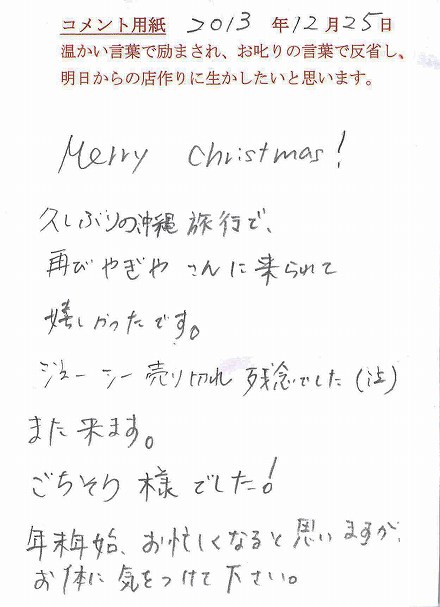 コメント用紙 2013 年12月25日
温かい言葉で励まされ、お叱りの言葉で反省し、
明日からの店作りに生かしたいと思います。
Merry Christmas!
久しぶりの沖縄旅行で、
再びやぎやさんに来られて
嬉しかったです。
ジューシー売り切れ残念でした(泣)
また来ます。
ごちそり様でした!
年末年始、お忙しくなると思いますが、
お体に気をつけて下さい。